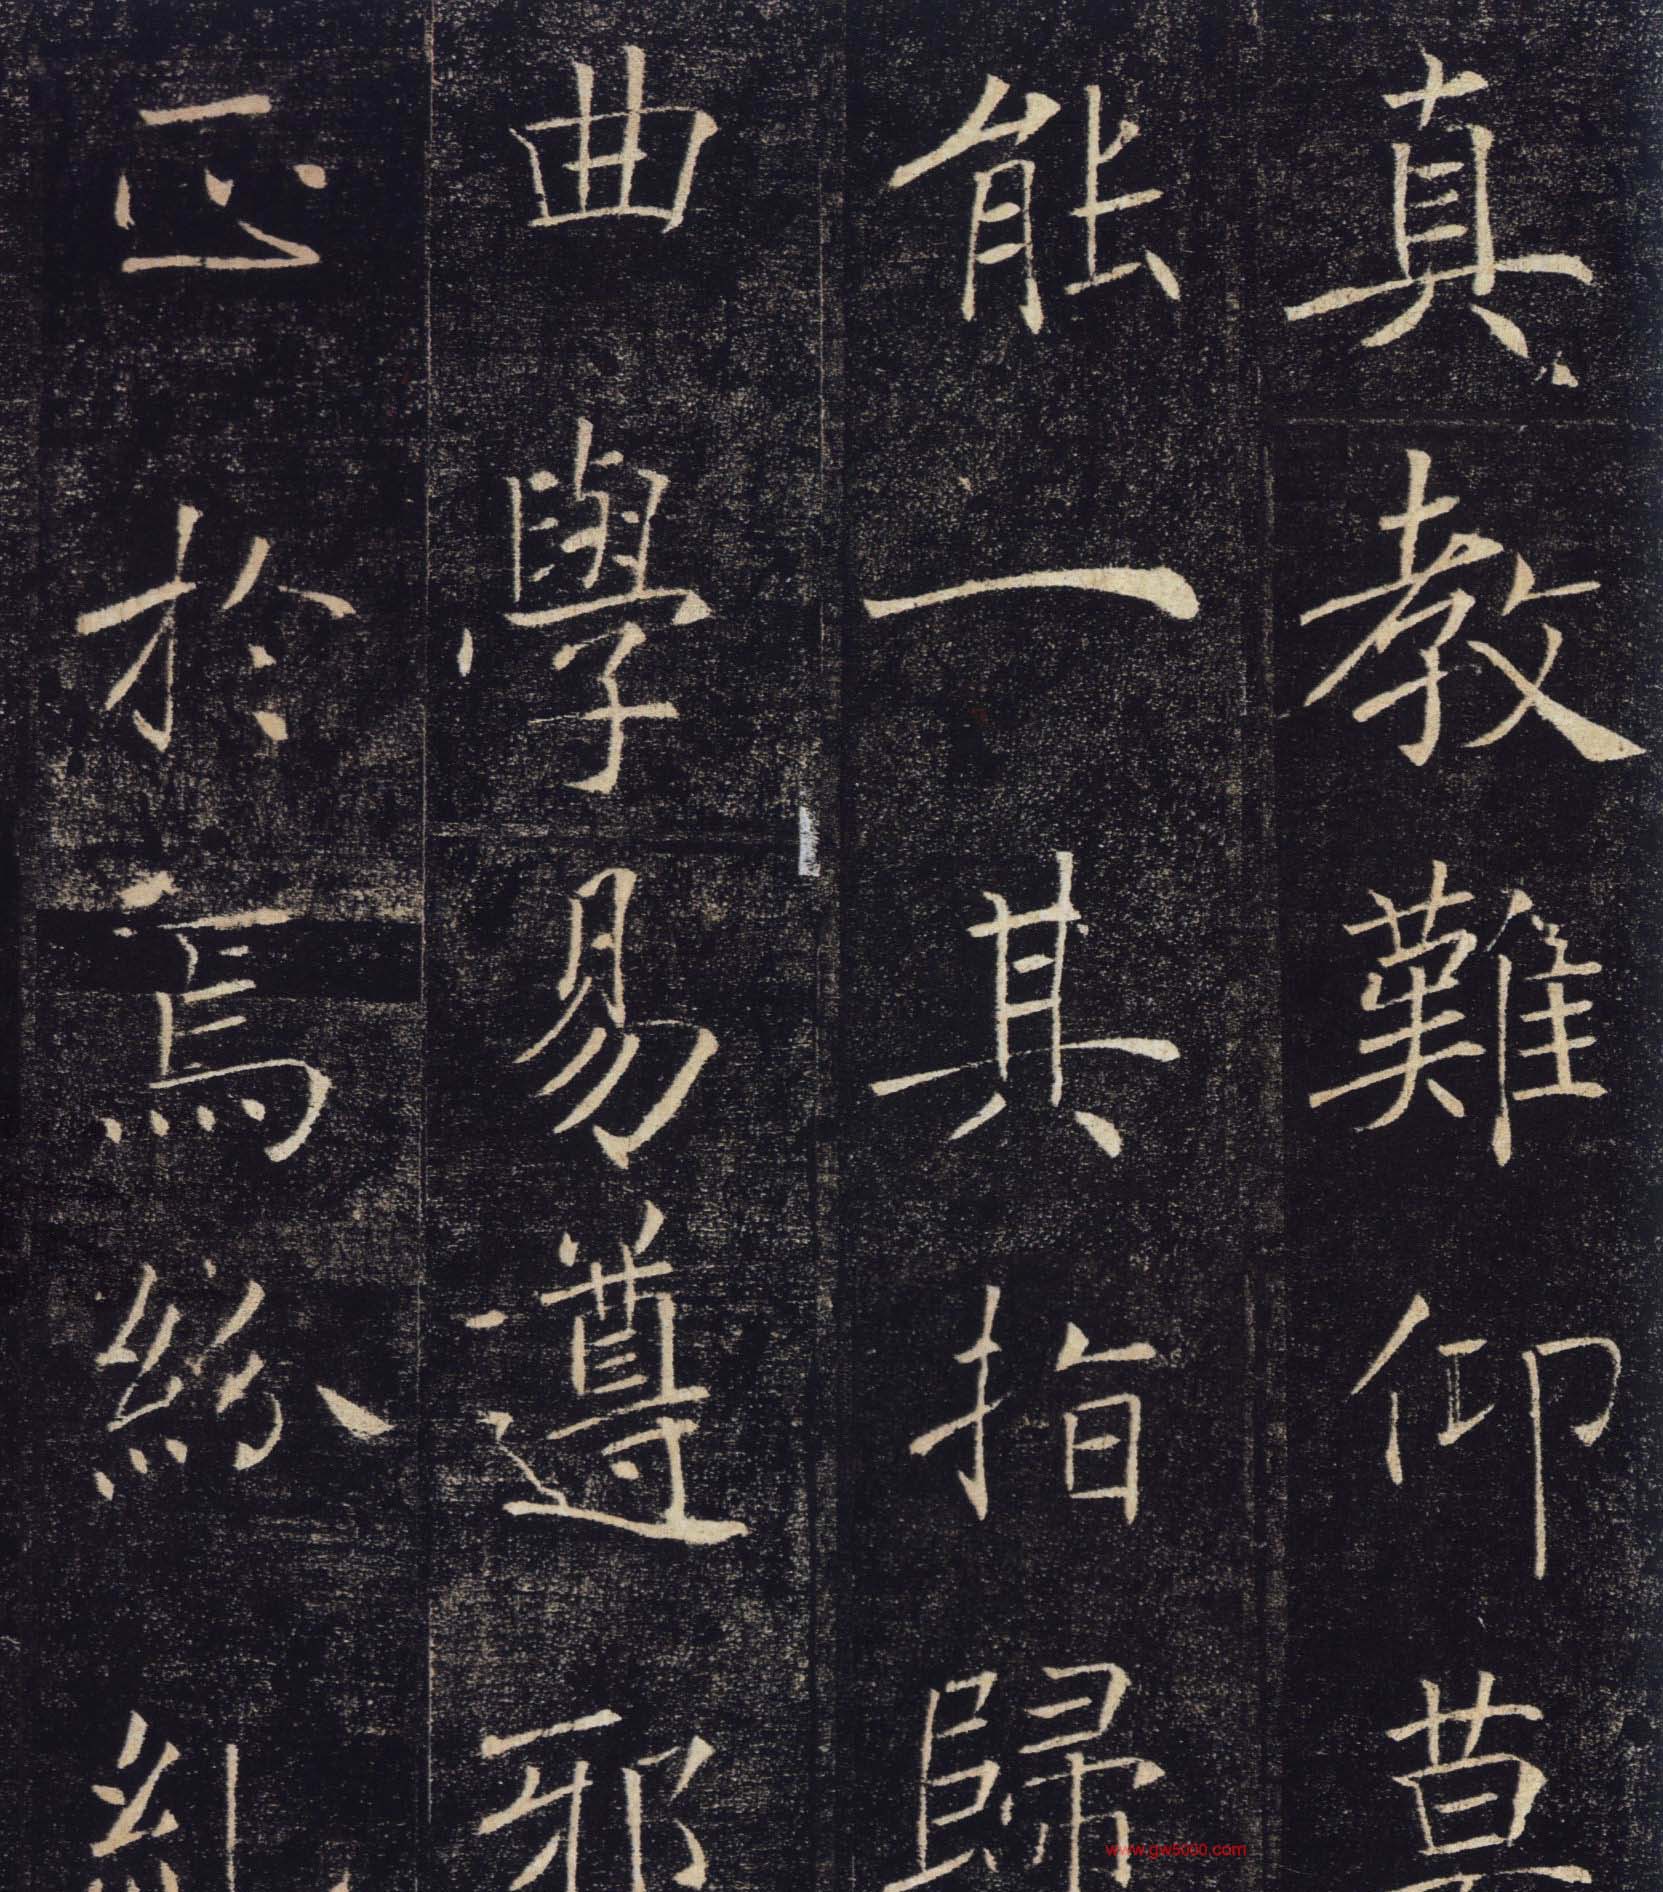 真教難仰莫
能一其指歸
曲學易遵邪
正於焉紛糺
www.gw5000.com